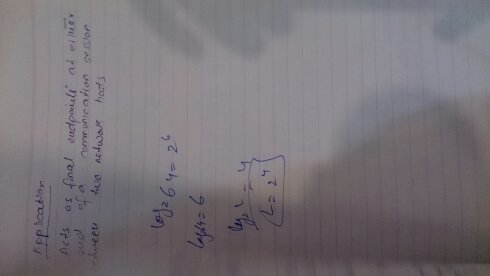 Application
Acts as final endpoints at either
end of a communication session
between two network hosts
log₂64 = 2⁶
log₂64 = 6
L = 2⁴